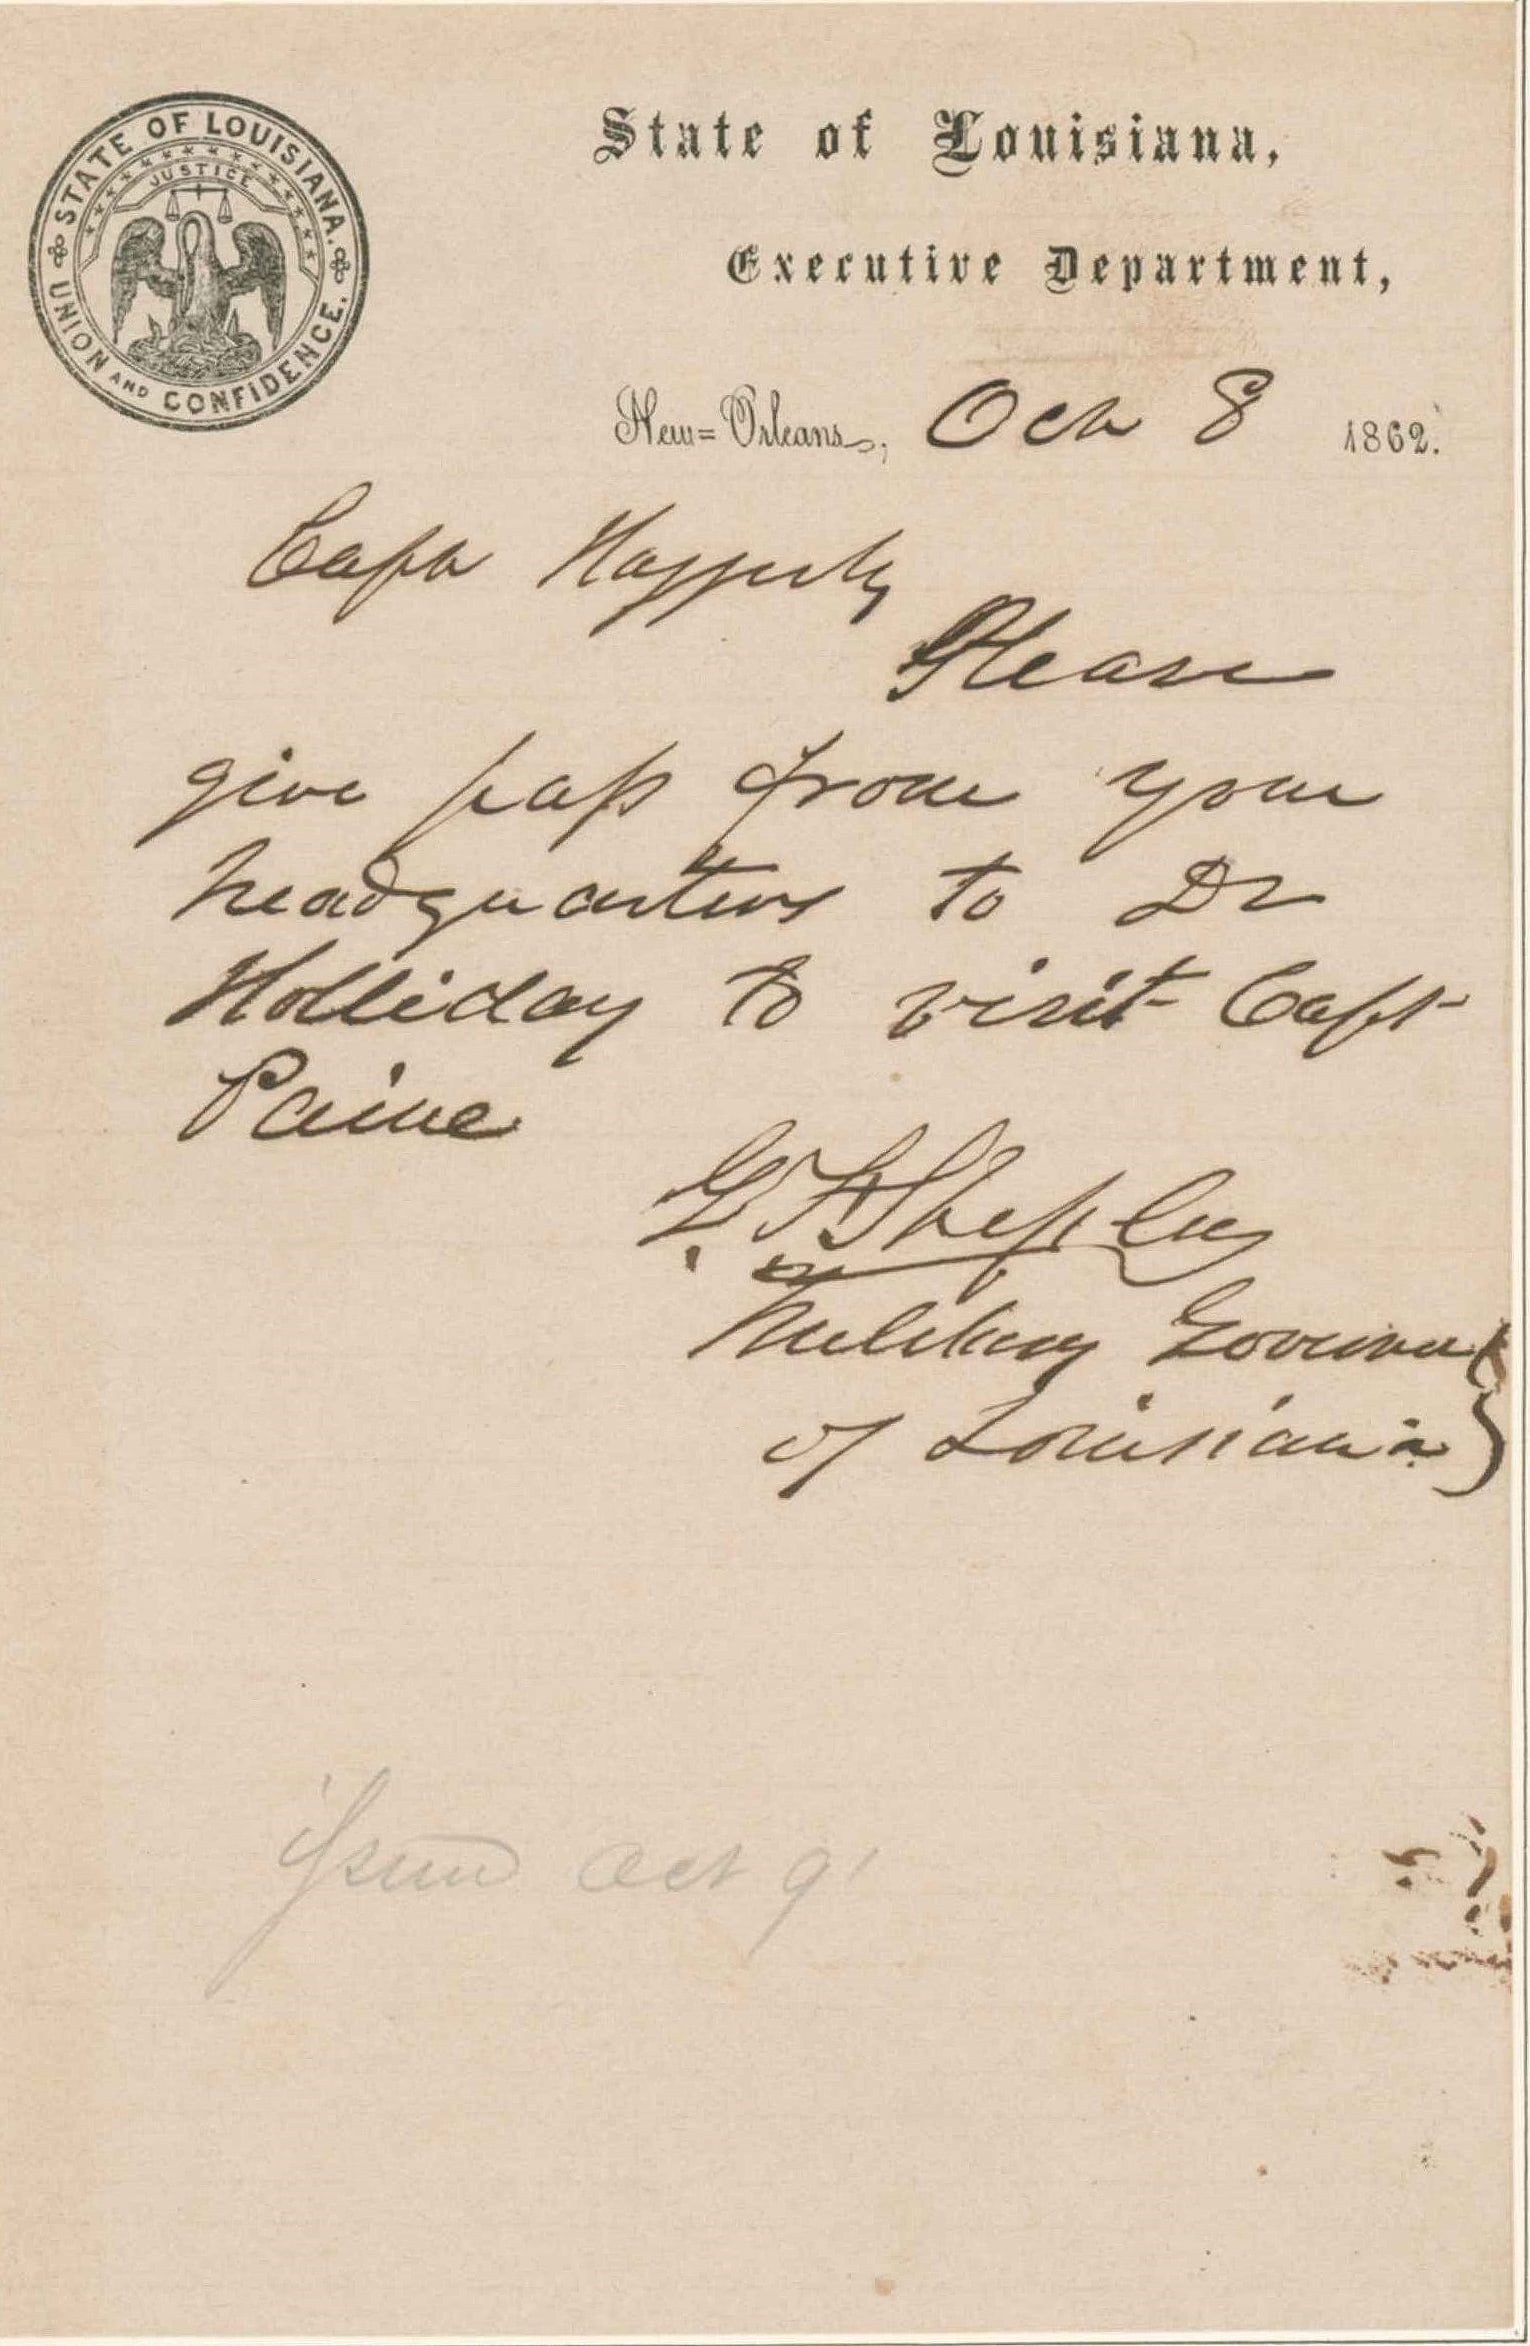 STATE OF LOUISIANA.
UNION AND CONFIDENCE.
JUSTICE
State of Louisiana,
Executive Department,
New=Orleans, Oct 8 1862.
Capt
Please
give pass from your
headquarters to Dr
Holliday to visit Capt
Paine
G. F. Shepley
Military Governor
of Louisiana
Oct 9